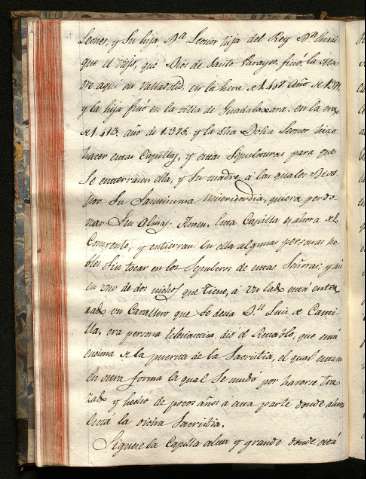 Leonor, y su hija D.ª Leonor hija del Rey D.n Henri
que el viejo, que Dios de Santo Parayso, finó la Ma
dre aqui en Valladolid en la hera de año de
y la hija finó en la villa de Guadalaxara: en la era
de 1413. año de 1375. y la dha Doña Leonor hizo
hacer estas Capillas, y estas Sepulturas para que
se enterrasen ella, y su madre, a las quales Dios
por su Santissima misericordia, quiera perdo
nar sus Almas. Amen. Esta Capilla es ahora de el
Convento, y entierran en ella algunas personas no
bles sin tocar en los Sepulcros de estas Señoras; y asi
en uno de dos nichos que tiene, a un lado está enter
rado un Cavallero que se decia D.n Luis de Casti
lla, era persona dió el Retablo, que está
encima de la puerta de la Sacristia, el qual estava
en otra forma la qual se mudó por haverse tra
zado y hecho de pocos años a esta parte donde ahora
está la dicha Sacristia.
Siguese la Capilla alta y grande donde está